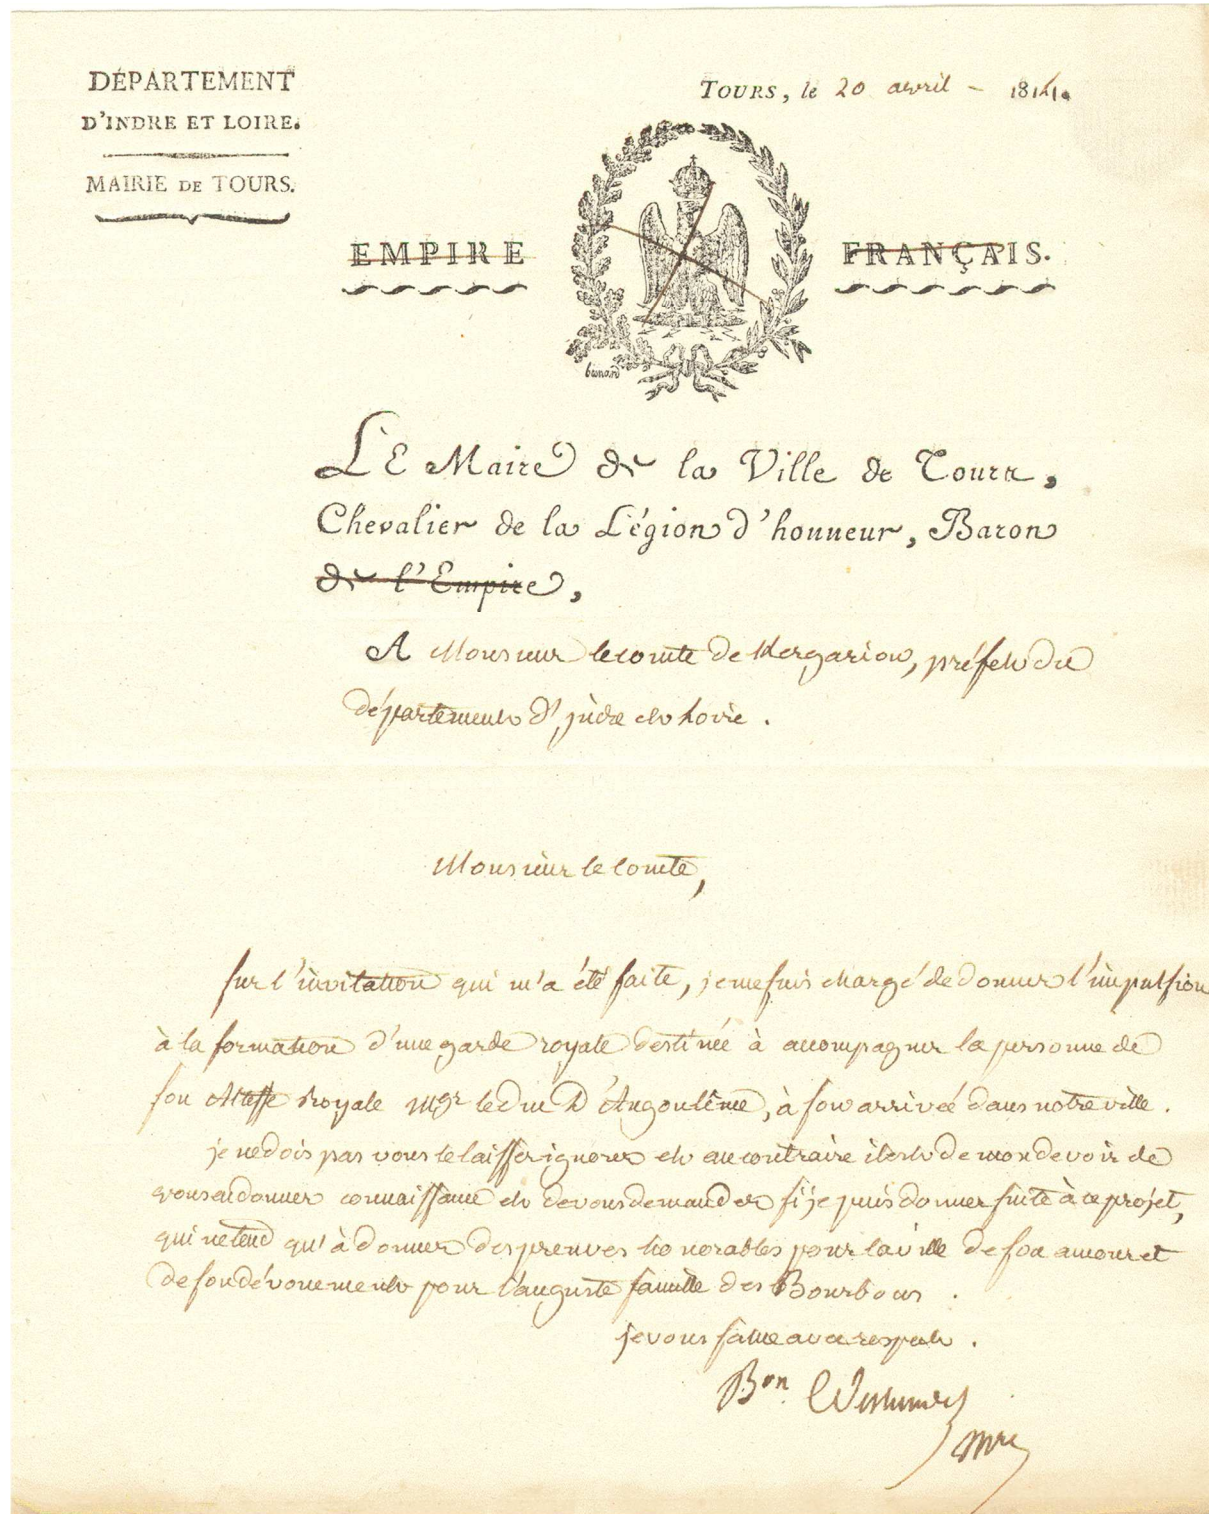 DÉPARTEMENT
D'INDRE ET LOIRE.
MAIRIE DE TOURS.
TOURS, le 20 avril - 1814.
EMPIRE FRANÇAIS.
LE Maire de la Ville de Tours,
Chevalier de la Légion d'honneur, Baron
de l'Empire,
A Monsieur le comte de Kergariou, préfet du
département d'jndre et Loire.
Monsieur le Comte,
sur l'invitation qui m'a été faite, je me suis chargé de donner l'impulsion
à la formation d'une garde royale destinée à accompagner la personne de
son Altesse Royale Mgr le Duc D'Angoulême, à son arrivée dans notre ville.
je ne dois pas vous le laisser ignorer et au contraire il est de mon devoir de
vous en donner connaissance et de vous demander si je puis donner suite à ce projet,
qui ne tend qu'à donner des preuves honorables pour la ville de son amour et
de son dévouement pour l'auguste famille des Bourbons.
je vous salue avec respect.
Bon